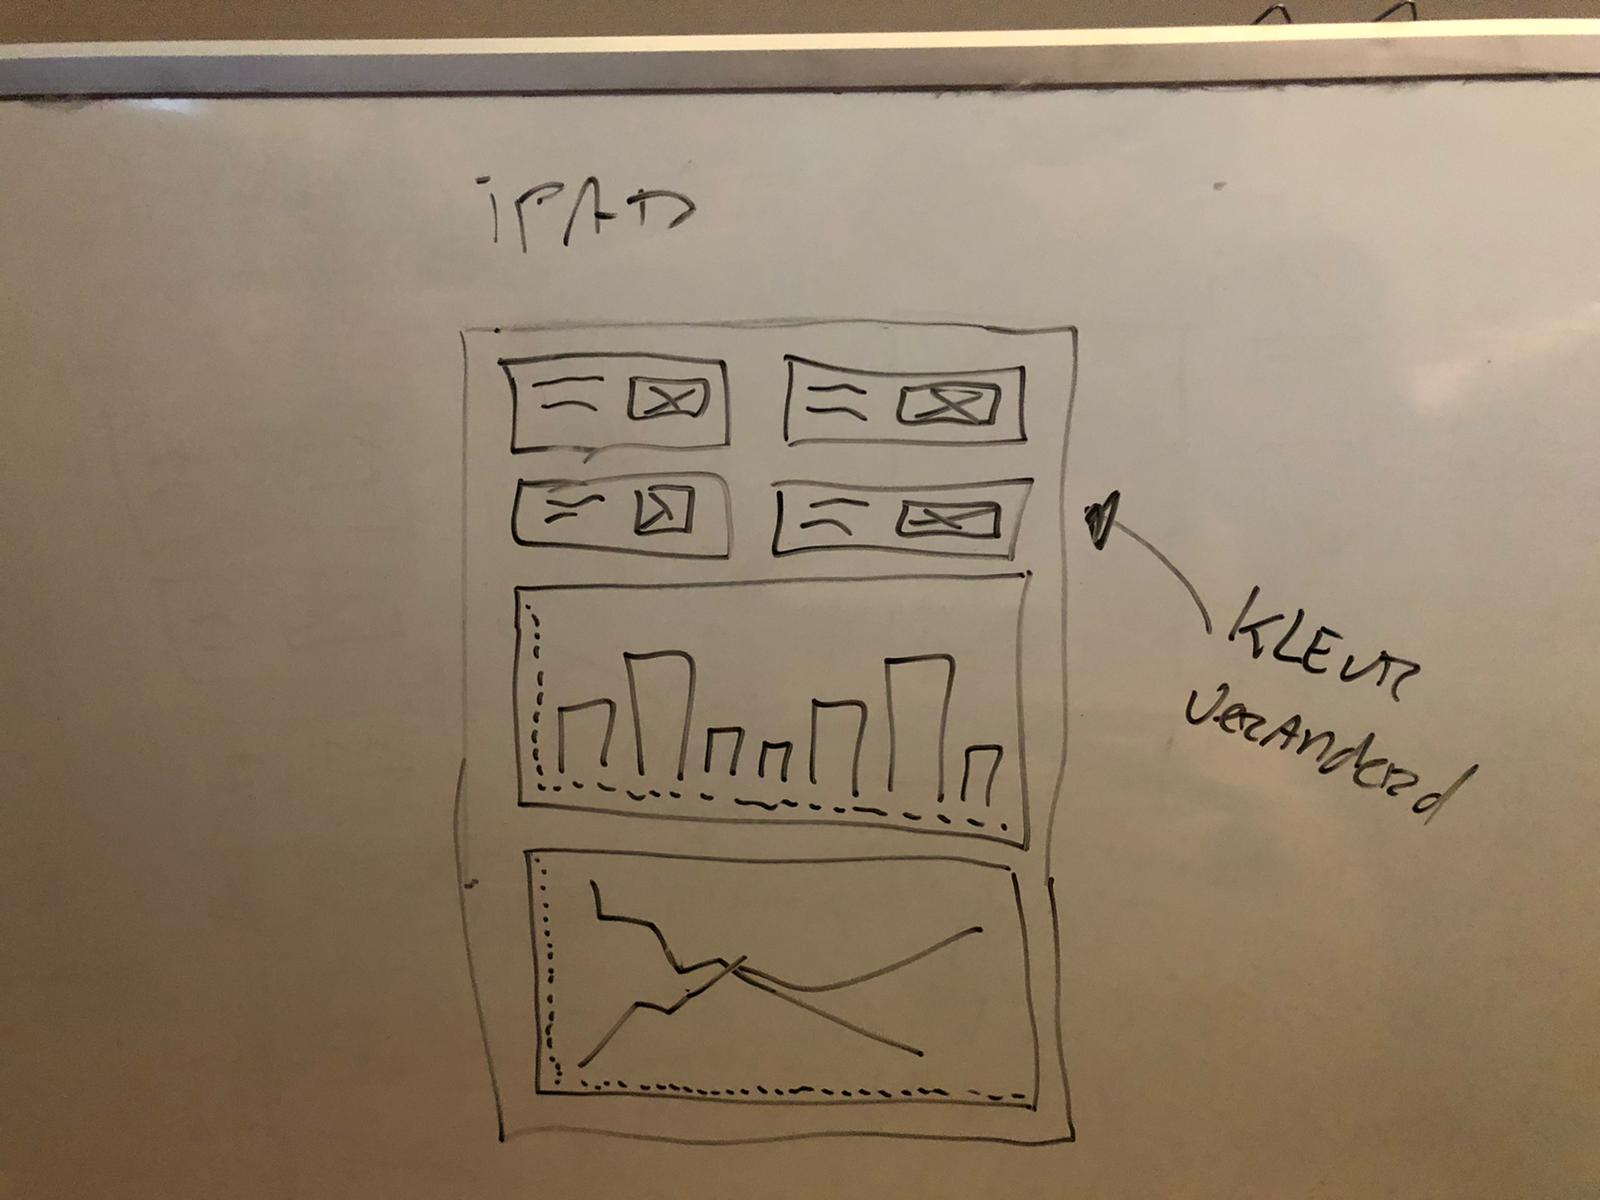 iPAD
KLEUR
veranderd